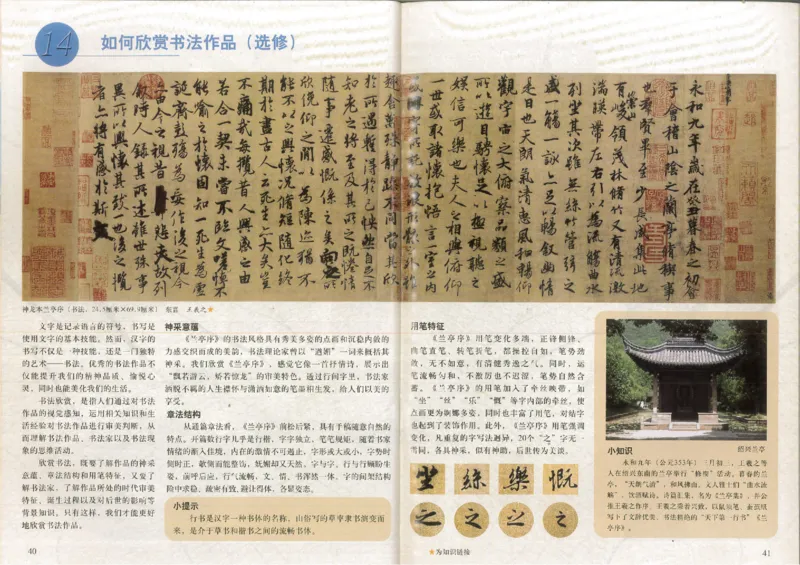 14 如何欣赏书法作品（选修）
永和九年歲在癸丑暮春之初會
于會稽山陰之蘭亭脩禊事
也群賢畢至少長咸集此地
有崇山峻領茂林脩竹又有清流激
湍暎帶左右引以為流觴曲水
列坐其次雖無絲竹管弦之
盛一觴一詠亦足以暢敘幽情
是日也天朗氣清惠風和暢仰
觀宇宙之大俯察品類之盛
所以遊目騁懷足以極視聽之
娛信可樂也夫人之相與俯仰
一世或取諸懷抱悟言一室之內
或因寄所託放浪形骸之外雖
趣舍萬殊靜躁不同當其欣
於所遇蹔得於己怏然自足不
知老之將至及其所之既惓情
隨事遷感慨係之矣向之所
欣俛仰之閒以為陳迹猶不
能不以之興懷況脩短隨化終
期於盡古人云死生亦大矣豈
不痛哉每攬昔人興感之由
若合一契未嘗不臨文嗟悼不
能喻之於懷固知一死生為虛
誕齊彭殤為妄作後之視今
亦由今之視昔悲夫故列
敘時人錄其所述雖世殊事
異所以興懷其致一也後之攬
者亦將有感於斯文
神龙本兰亭序（书法，24.5厘米×69.9厘米） 东晋 王羲之★
文字是记录语言的符号，书写是
使用文字的基本技能。然而，汉字的
书写不仅是一种技能，还是一门独特
的艺术——书法。优秀的书法作品不
仅能提升我们的精神品质、愉悦心
灵，同时也能美化我们的生活。
书法欣赏，是指人们通过对书法
作品的视觉感知，运用相关知识和生
活经验对书法作品进行审美判断，从
而理解书法作品、书法家以及书法现
象的思维活动。
欣赏书法，既要了解作品的神采
意蕴、章法结构和用笔特征，又要了
解书法家，了解作品所处的时代审美
特征、诞生过程以及对后世的影响等
背景知识，只有这样，我们才能更好
地欣赏书法作品。
40
神采意蕴
《兰亭序》的书法风格具有秀美多姿的点画和沉稳内敛的
力感交织而成的美韵。书法理论家曾以“遒媚”一词来概括其
神采。我们欣赏《兰亭序》，感觉它像一首抒情诗，展示出
“飘若游云，矫若惊龙”的审美特色。透过行间字里，书法家
洒脱不羁的人生襟怀与潇洒如意的笔墨相生发，给人们以美的
享受。
章法结构
从通篇章法看，《兰亭序》前松后紧，具有干稿随意自然的
特点。开篇数行字几乎是行楷，字字独立，笔笔规矩，随着书家
情绪的渐入佳境，内在的激情不可遏止，字形或大或小，字势时
倒时正，欹侧而能整饬，妩媚却又天然。字与字、行与行顾盼生
姿，前呼后应，行气流畅，文、情、书浑然一体，字的间架结构
险中求稳，疏密有致，避让得体，各显姿态。
小提示
行书是汉字一种书体的名称，由俗写的草率隶书演变而
来，是介于草书和楷书之间的流畅书体。
用笔特征
《兰亭序》用笔变化多端，正锋侧锋、
曲笔直笔、转笔折笔，都操控自如，笔势劲
敛，无不如意，有清健秀逸之气。同时，运
笔流畅匀和，不激厉也不迟滞，笔势自然含
蓄。《兰亭序》的用笔加入了牵丝映带，如
“坐”“丝”“乐”“慨”等字内部的牵丝，使
点画更为婀娜多姿，同时也丰富了用笔，对结字
也起到了装饰作用。此外，《兰亭序》用笔强调
变化，凡重复的字写法迥异，20个“之”字无一
雷同，各具神采，似有神助，后世传为美谈。
坐 絲 樂 慨
之 之 之 之
★为知识链接
绍兴兰亭
小知识
永和九年（公元353年）三月初三，王羲之等
人在绍兴东南的兰亭举行“修禊”活动。暮春的兰
亭，“天朗气清”，和风拂面，文人雅士们“曲水流
觞”，饮酒赋诗，诗篇汇集，名为《兰亭集》，并公
推王羲之作序。王羲之乘着兴致，以鼠须笔、蚕茧纸
写下了文辞优美、书法精绝的“天下第一行书”《兰
亭序》。
41